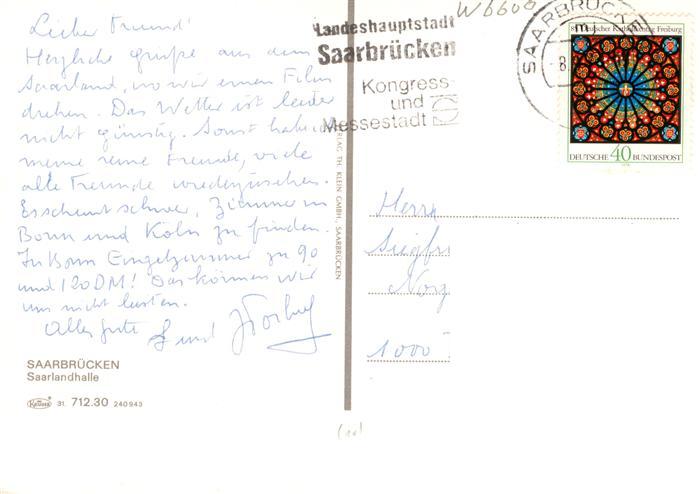 Lieber Freund!
Herzliche Grüße aus dem
Saarland, wo wir einen Film
drehen. Das Wetter ist leider
nicht günstig. Sonst habe ich
meine reine Freude, viele
alte Freunde wiederzusehen.
Es scheint schwer, Zimmer in
Bonn und Köln zu finden.
In Bonn Einzelzimmer zu 90
und 120 DM! Das können wir
uns nicht leisten.
Alles Gute
SAARBRÜCKEN
Saarlandhalle
31. 712.30 240943
VERLAG TH. KLEIN GMBH., SAARBRÜCKEN
W6600
Landeshauptstadt
Saarbrücken
Kongress-
und
Messestadt
SAARBRÜCKEN
m
8.
85. Deutscher Katholikentag Freiburg
DEUTSCHE 40 BUNDESPOST
Herrn
Siegfr
Norg
1000